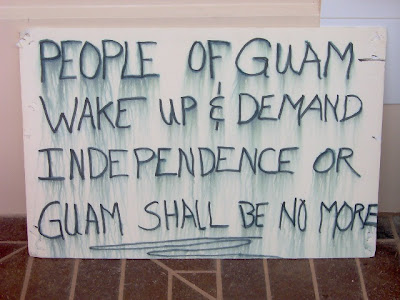 PEOPLE OF GUAM-
WAKE UP & DEMAND
INDEPENDENCE OR
GUAM SHALL BE NO MORE